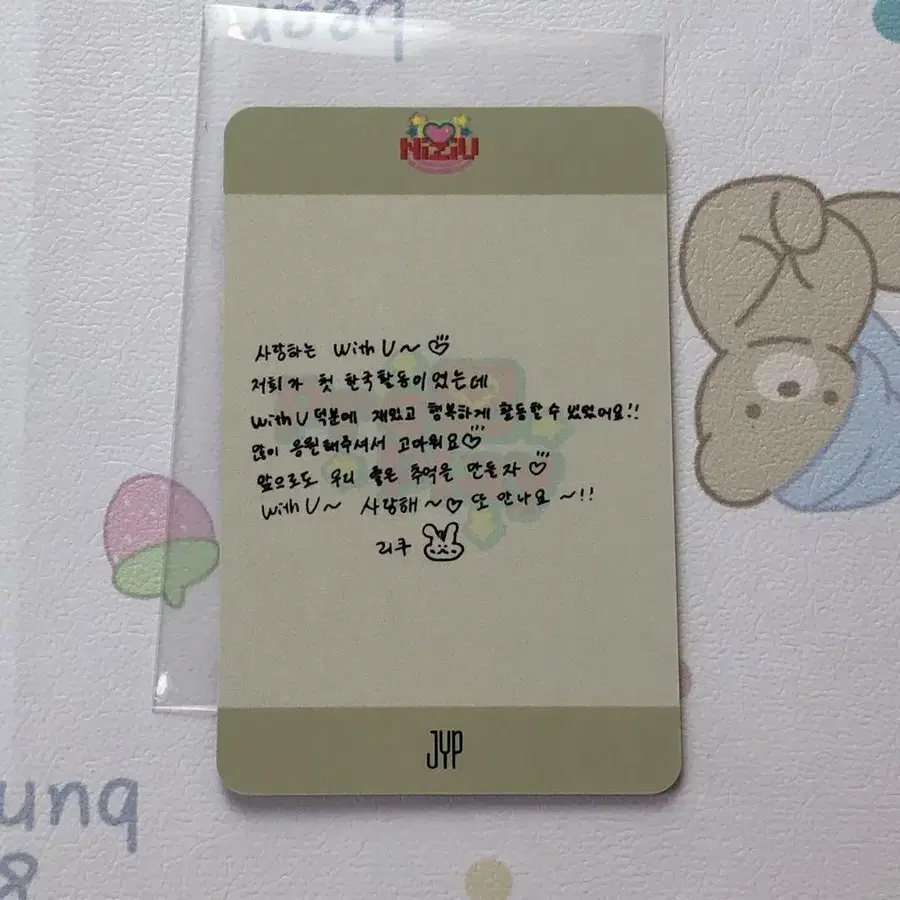 peun
NiziU
사랑하는 With U~ ♡
저희가 첫 한국활동이었는데
With U 덕분에 재밌고 행복하게 활동할 수 있었어요!!
많이 응원해주셔서 고마워요♡
앞으로도 우리 좋은 추억을 만들자 ♡
With U~ 사랑해~♡ 또 만나요~!!
리쿠
JYP
ung